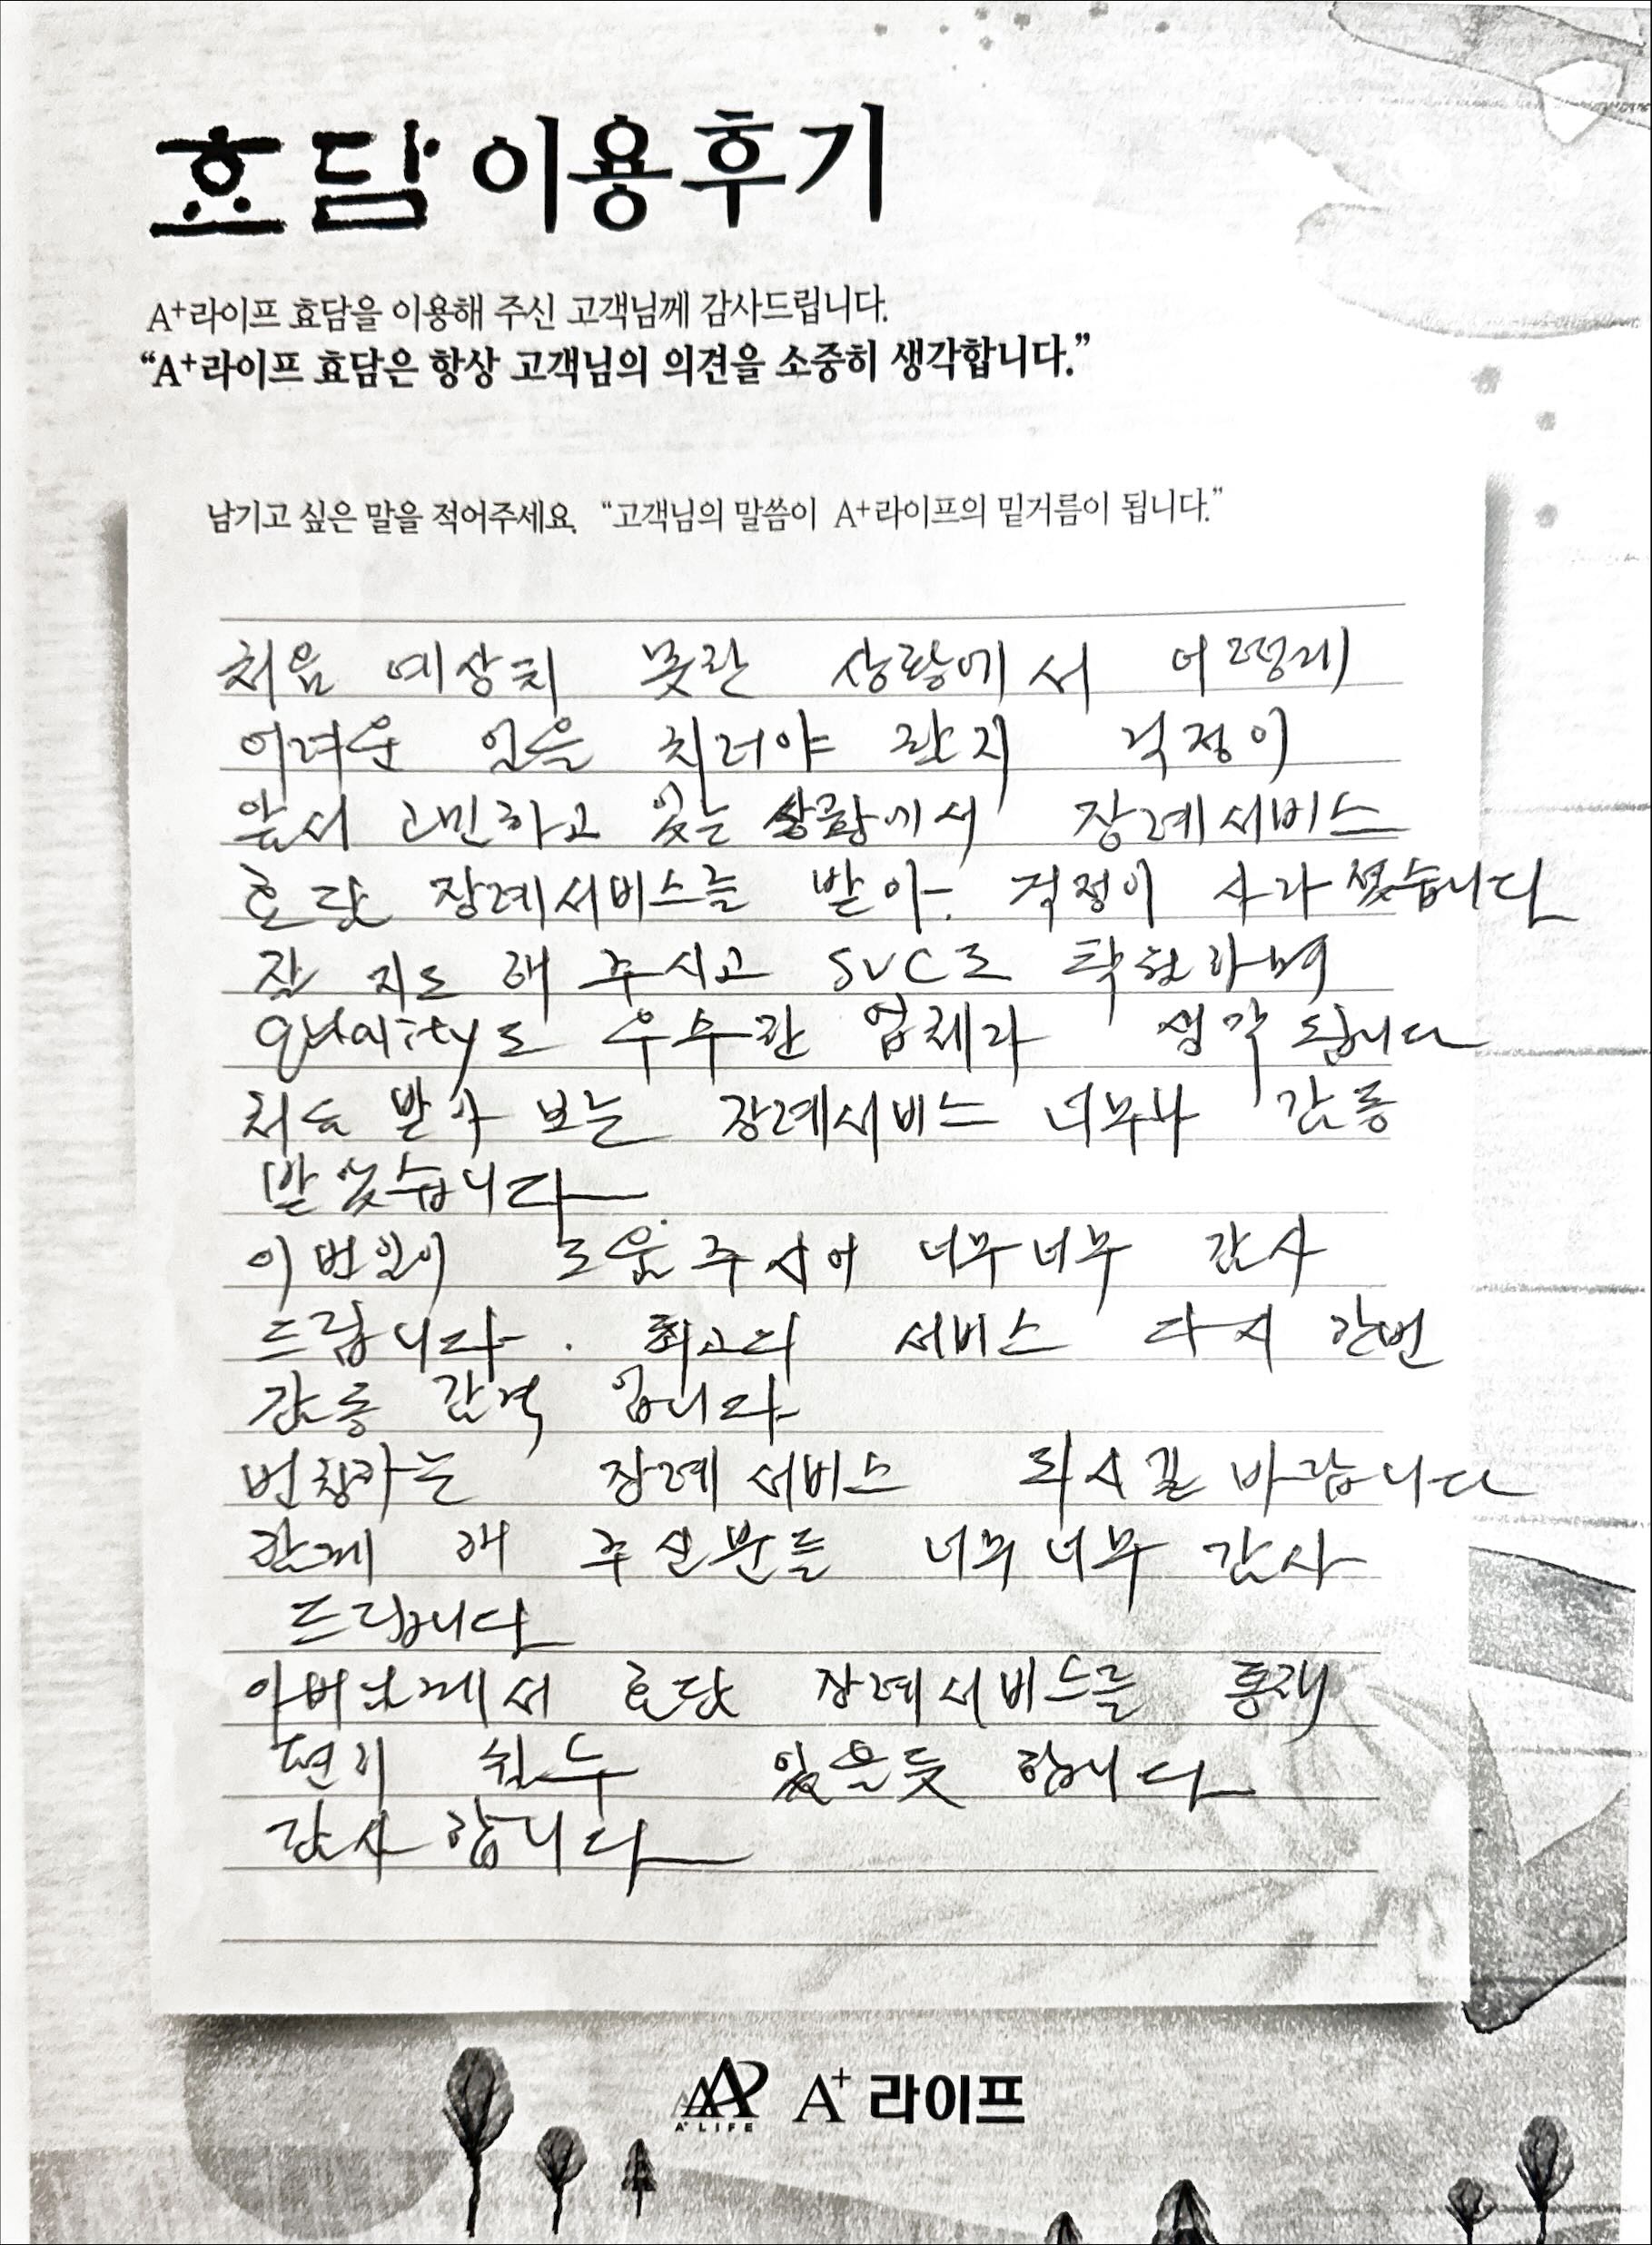 효담 이용후기
A⁺라이프 효담을 이용해 주신 고객님께 감사드립니다.
“A⁺라이프 효담은 항상 고객님의 의견을 소중히 생각합니다.”
남기고 싶은 말을 적어주세요. “고객님의 말씀이 A⁺라이프의 밑거름이 됩니다.”
처음 예상치 못한 상황에서 어떻게
어려운 일을 치러야 한지 걱정이
앞서 고민하고 있는 상황에서 장례서비스
효담 장례서비스를 받아. 걱정이 사라졌습니다
잘 지도 해 주시고 SVC도 탁월하며
quality도 우수한 업체라 생각 됩니다
처음 받아 보는 장례서비스 너무나 감동
받았습니다
이번일이 도움 주시어 너무너무 감사
드립니다. 최고의 서비스 다시 한번
감동 감격 입니다
번창하는 장례 서비스 되시길 바랍니다
함께 해 주신분들 너무너무 감사
드립니다
아버님께서 효담 장례서비스를 통해
편히 쉴수 있을듯 합니다
감사합니다
A⁺ LIFE
A⁺ 라이프